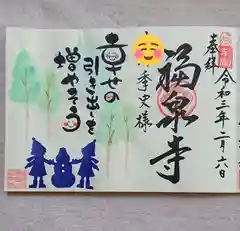 奉拝
令和三年二月六日
福泉寺
季史様
幸せの
引き出しを
増やそう